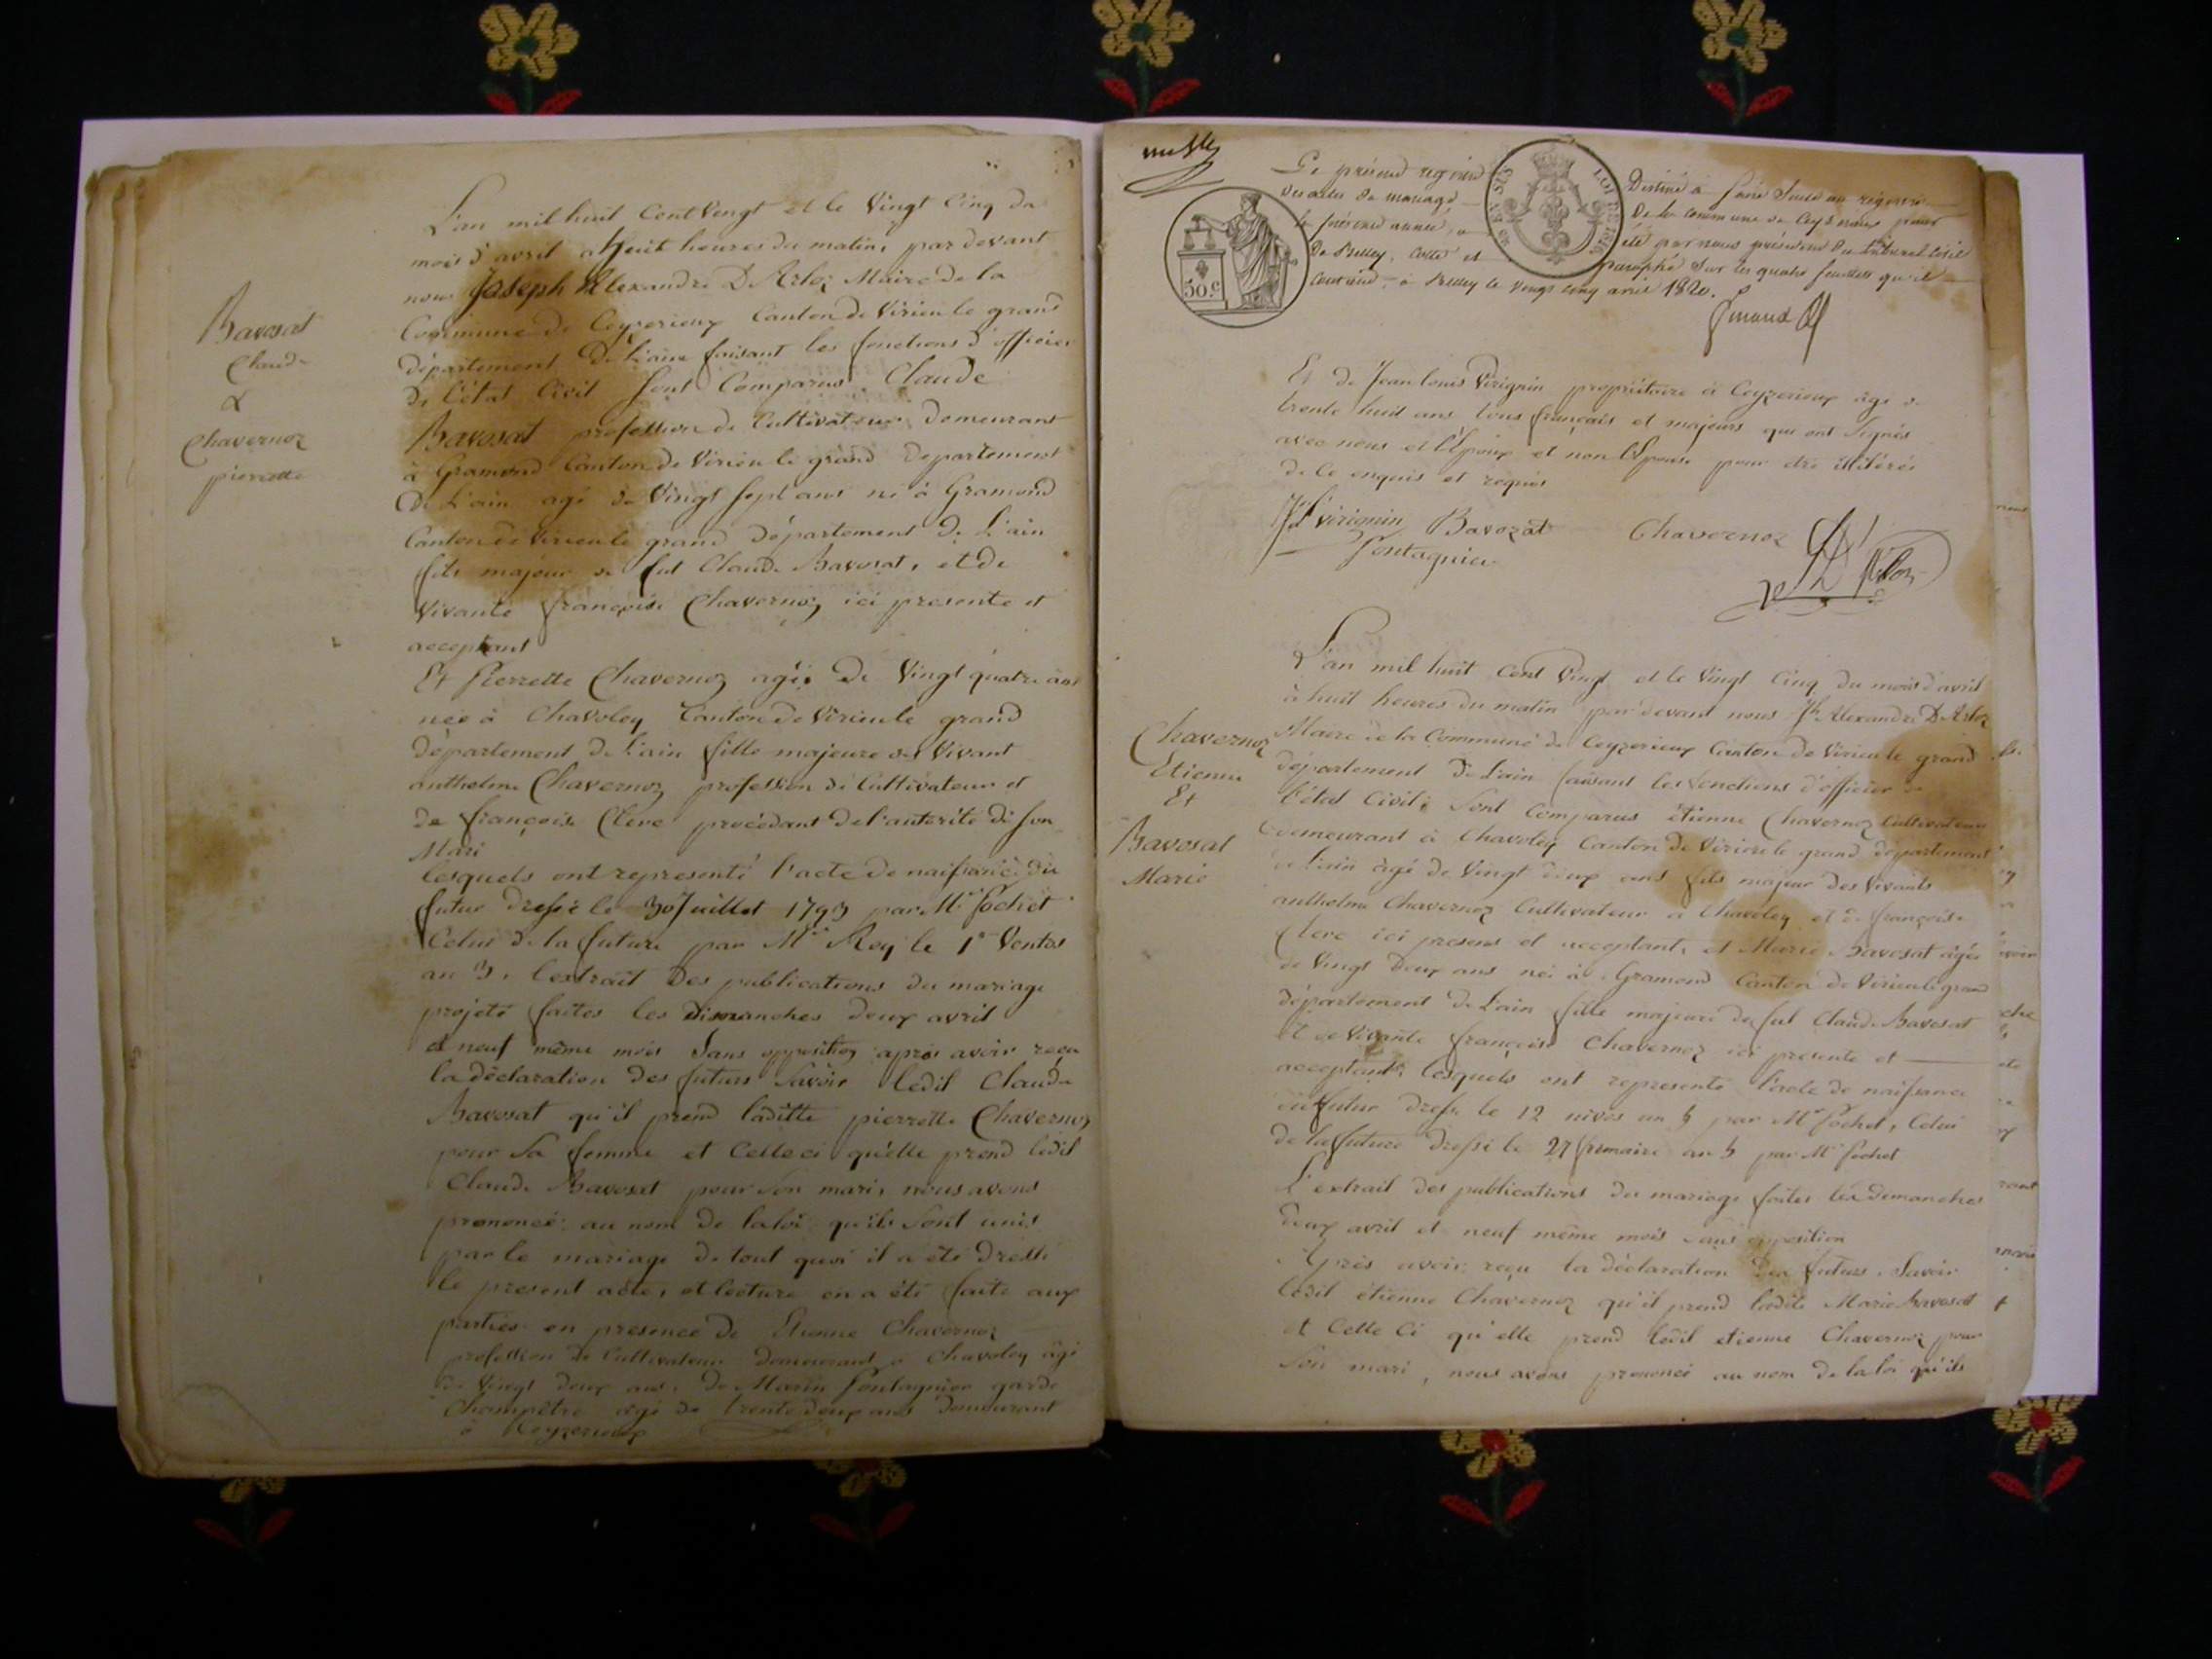 Bavosat
Claude
&
Chavernoz
pierrette
L'an mil huit Cent Vengt et le Vingt Cinq du
mois d'avril a Heuit heures du matin, par devant
nous Joseph Alexandre D Arloz Maire de la
Commune de Ceyzerieux Canton de Virieu le grand
département De L'ain faisant les fonctions d'officier
De l'état Civil Sont Comparus, Claude
Bavosat profession de Cultivateur demeurant
à Gramond Canton de Virieu le grand Departement
De L'ain agé de Vingt Sept ans né à Gramond
Canton de Virieu le grand Département De L'ain
fils majeur de feu Claude Bavosat, et de
Vivante françoise Chavernoz ici presente et
acceptant
Et Pierrette Chavernoz agée De Vingt quatre ans
née à Chavoley Canton de Virieu le grand
département de L'ain fille majeure des Vivant
anthelme Chavernoz profession de Cultivateur et
de françoise Clerc procédant de l'autorité de son
Mari
lesquels ont representé l'acte de naissance du
futur dressé le 30 Juillet 1793 par Mr Pochet
Celui de la future par Mr Rey le 1er Ventos
an 3, l'extrait Des publications du mariage
projeté faites les Dimanches deux avril
et neuf même mois Sans opposition après avoir reçu
la déclaration Des futurs Savoir ledit Claude
Bavosat qu'il prend laditte pierrette Chavernoz
pour Sa femme et Celle ci qu'elle prend ledit
Claude Bavosat pour son mari, nous avons
prononcé au nom de la loi qu'ils Sont unis
par le mariage de tout quoi il a été Dressé
le présent acte, et lecture en a été faite aux
parties en presence de Etienne Chavernoz
profession de Cultivateur demeurant à Chavoley âgé
de Vingt deux ans, De Marin Pontagnier garde
Champêtre agé de trente deux ans demeurant
à Ceyzerieux
Le présent registre
des actes de mariage
la présente année, a
De Belley, Cotté et
Contient, à Belley le vingt cinq avril 1820.
EN SUS
LOI DE 1816
50.c
Destiné à faire Suite au régistre
De la commune de Ceyzerieux pour
été par nous président Du tribunal Civil
paraphé Sur les quatre feuillets qu'il
Et de Jean louis Virignin propriétaire à Ceyzerieux âgé de
trente huit ans tous français et majeurs qui ont Signés
avec nous et l'Epoux et non l'Epouse pour être illitéré
de Ce enquis et requis
Jn Ls Virignin Bavozat Chavernoz
Pontagnier
D'Arloz
Chavernoz
Etienne
Et
Bavosat
Marie
L'an mil huit Cent Vingt et le Vingt Cinq du mois d'avril
à huit heures du matin par devant nous Jh Alexandre D Arloz
Maire de la Commune de Ceyzerieux Canton de Virieu le grand
département De L'ain faisant les fonctions d'officier de
l'état Civil Sont Comparus étienne Chavernoz Cultivateur
demeurant à Chavoley Canton De Virieu le grand département
de L'ain âgé de Vingt deux ans fils majeur des Vivants
anthelme Chavernoz Cultivateur à Chavoley et de françoise
Clerc ici présens et acceptant, et Marie Bavosat âgée
de Vingt Deux ans née à Gramond Canton de Virieu le grand
département De Lain fille majeure de feu Claude Bavosat
et de Vivante françoise Chavernoz ici présente et
acceptant, lesquels ont représenté l'acte de naissance
du futur Dressé le 12 nivos an 5 par Mr Pochet, Celui
de la future Dressé le 27 frimaire an 5 par Mr Pochet
L'extrait des publications du mariage faites les dimanches
deux avril et neuf même mois sans opposition
Après avoir reçu la déclaration des futurs, Savoir
ledit étienne Chavernoz qu'il prend ladite Marie Bavosat
et Celle Ci qu'elle prend ledit etienne Chavernoz pour
Son mari, nous avons prononcé au nom de la loi qu'ils